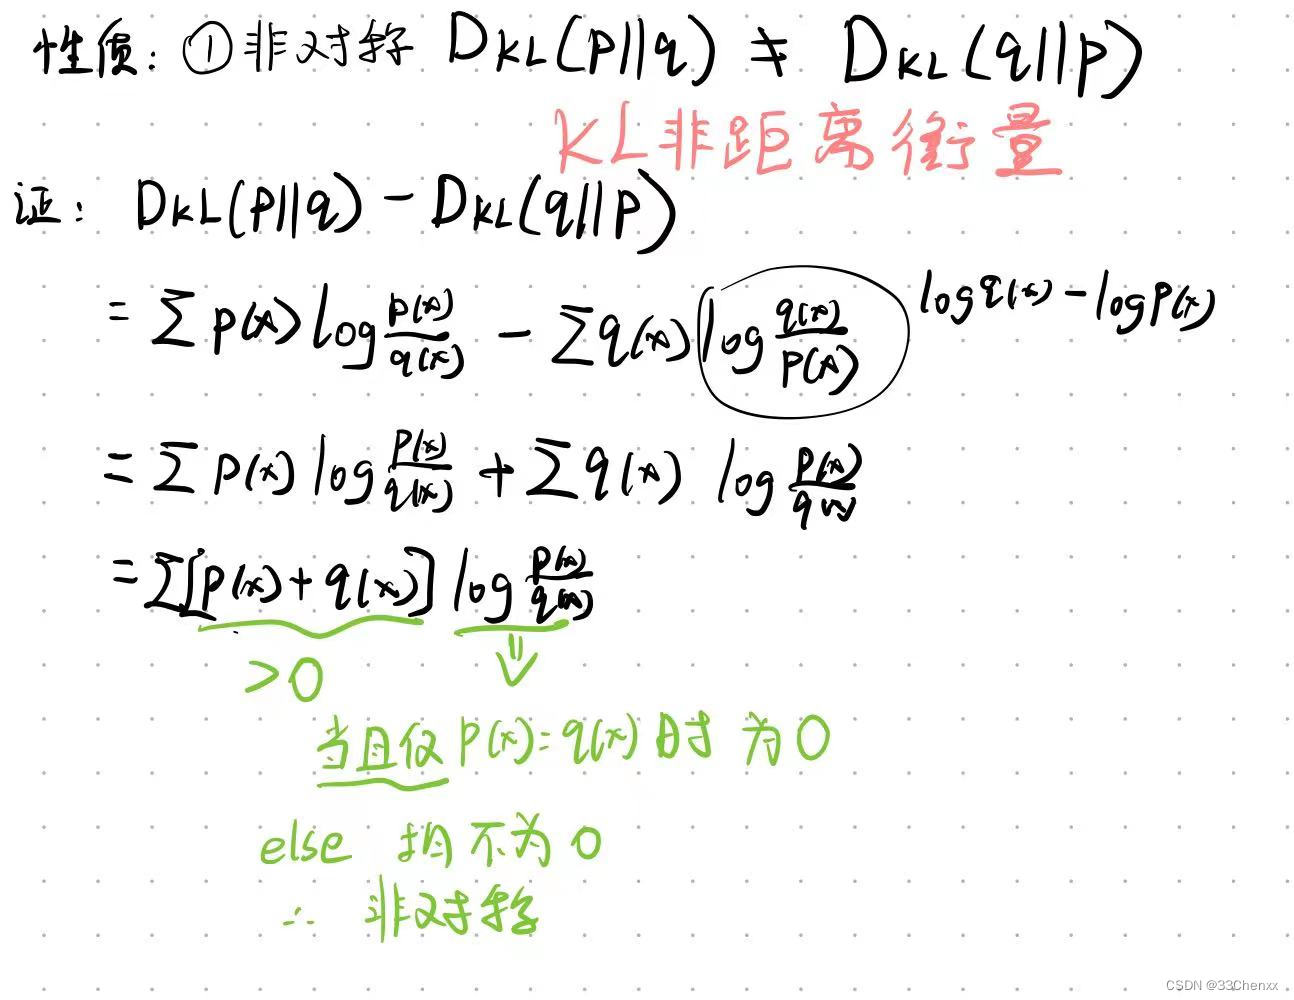 性质: ①非对称 DKL(p||q) ≠ DKL(q||p)
KL非距离衡量
证: DKL(p||q) - DKL(q||p)
= Σ p(x) log p(x)/q(x) - Σ q(x) log q(x)/p(x) log q(x) - log p(x)
= Σ p(x) log p(x)/q(x) + Σ q(x) log p(x)/q(x)
= Σ[p(x) + q(x)] log p(x)/q(x)
>0 ⇓
当且仅 p(x) = q(x) 时 为 0
else 均不为 0
∴ 非对称
CSDN @33Chenxx